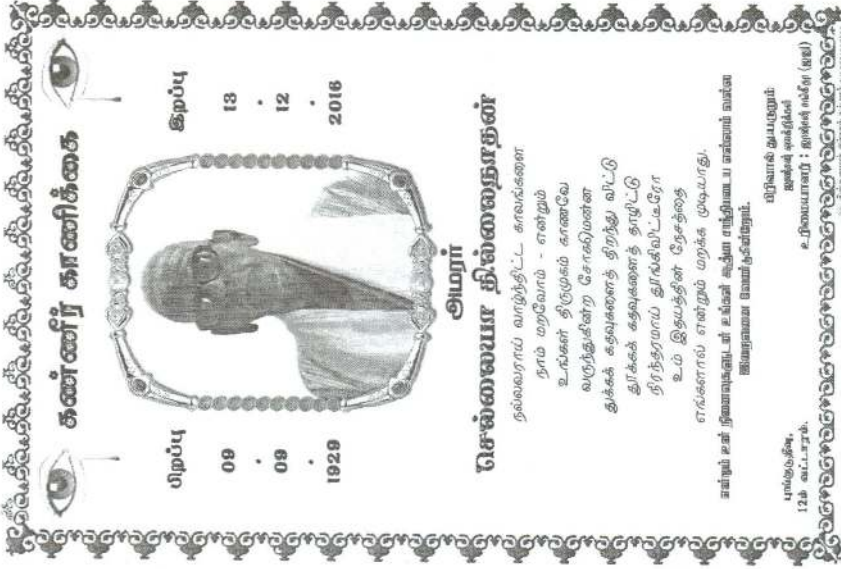 கண்ணீர் காணிக்கை
பிறப்பு
09
.
09
.
1929
இறப்பு
13
.
12
.
2016
அமரர்
செல்லையா தில்லைநாதன்
நல்லவராய் வாழ்ந்திட்ட காலங்களை
நாம் மறவோம் - என்றும்
உங்கள் திருமுகம் காணவே
வருந்துகின்ற சோகமென்ன
துக்கக் கதவுகளைத் திறந்து விட்டு
தூக்கக் கதவுகளைத் தாழிட்டு
நிரந்தரமாய் தூங்கிவிட்டீரோ
உம் இதயத்தின் நேசத்தை
எங்களால் என்றும் மறக்க முடியாது.
என்றும் உன் நினைவுகளுடன் உங்கள் ஆத்ம சாந்தியடைய எல்லாம் வல்ல
இறைவனை வேண்டுகின்றோம்.
புங்குடுதீவு,
12ம் வட்டாரம்.
பிரிவால் துயருறும்
உரிமையாளர் :